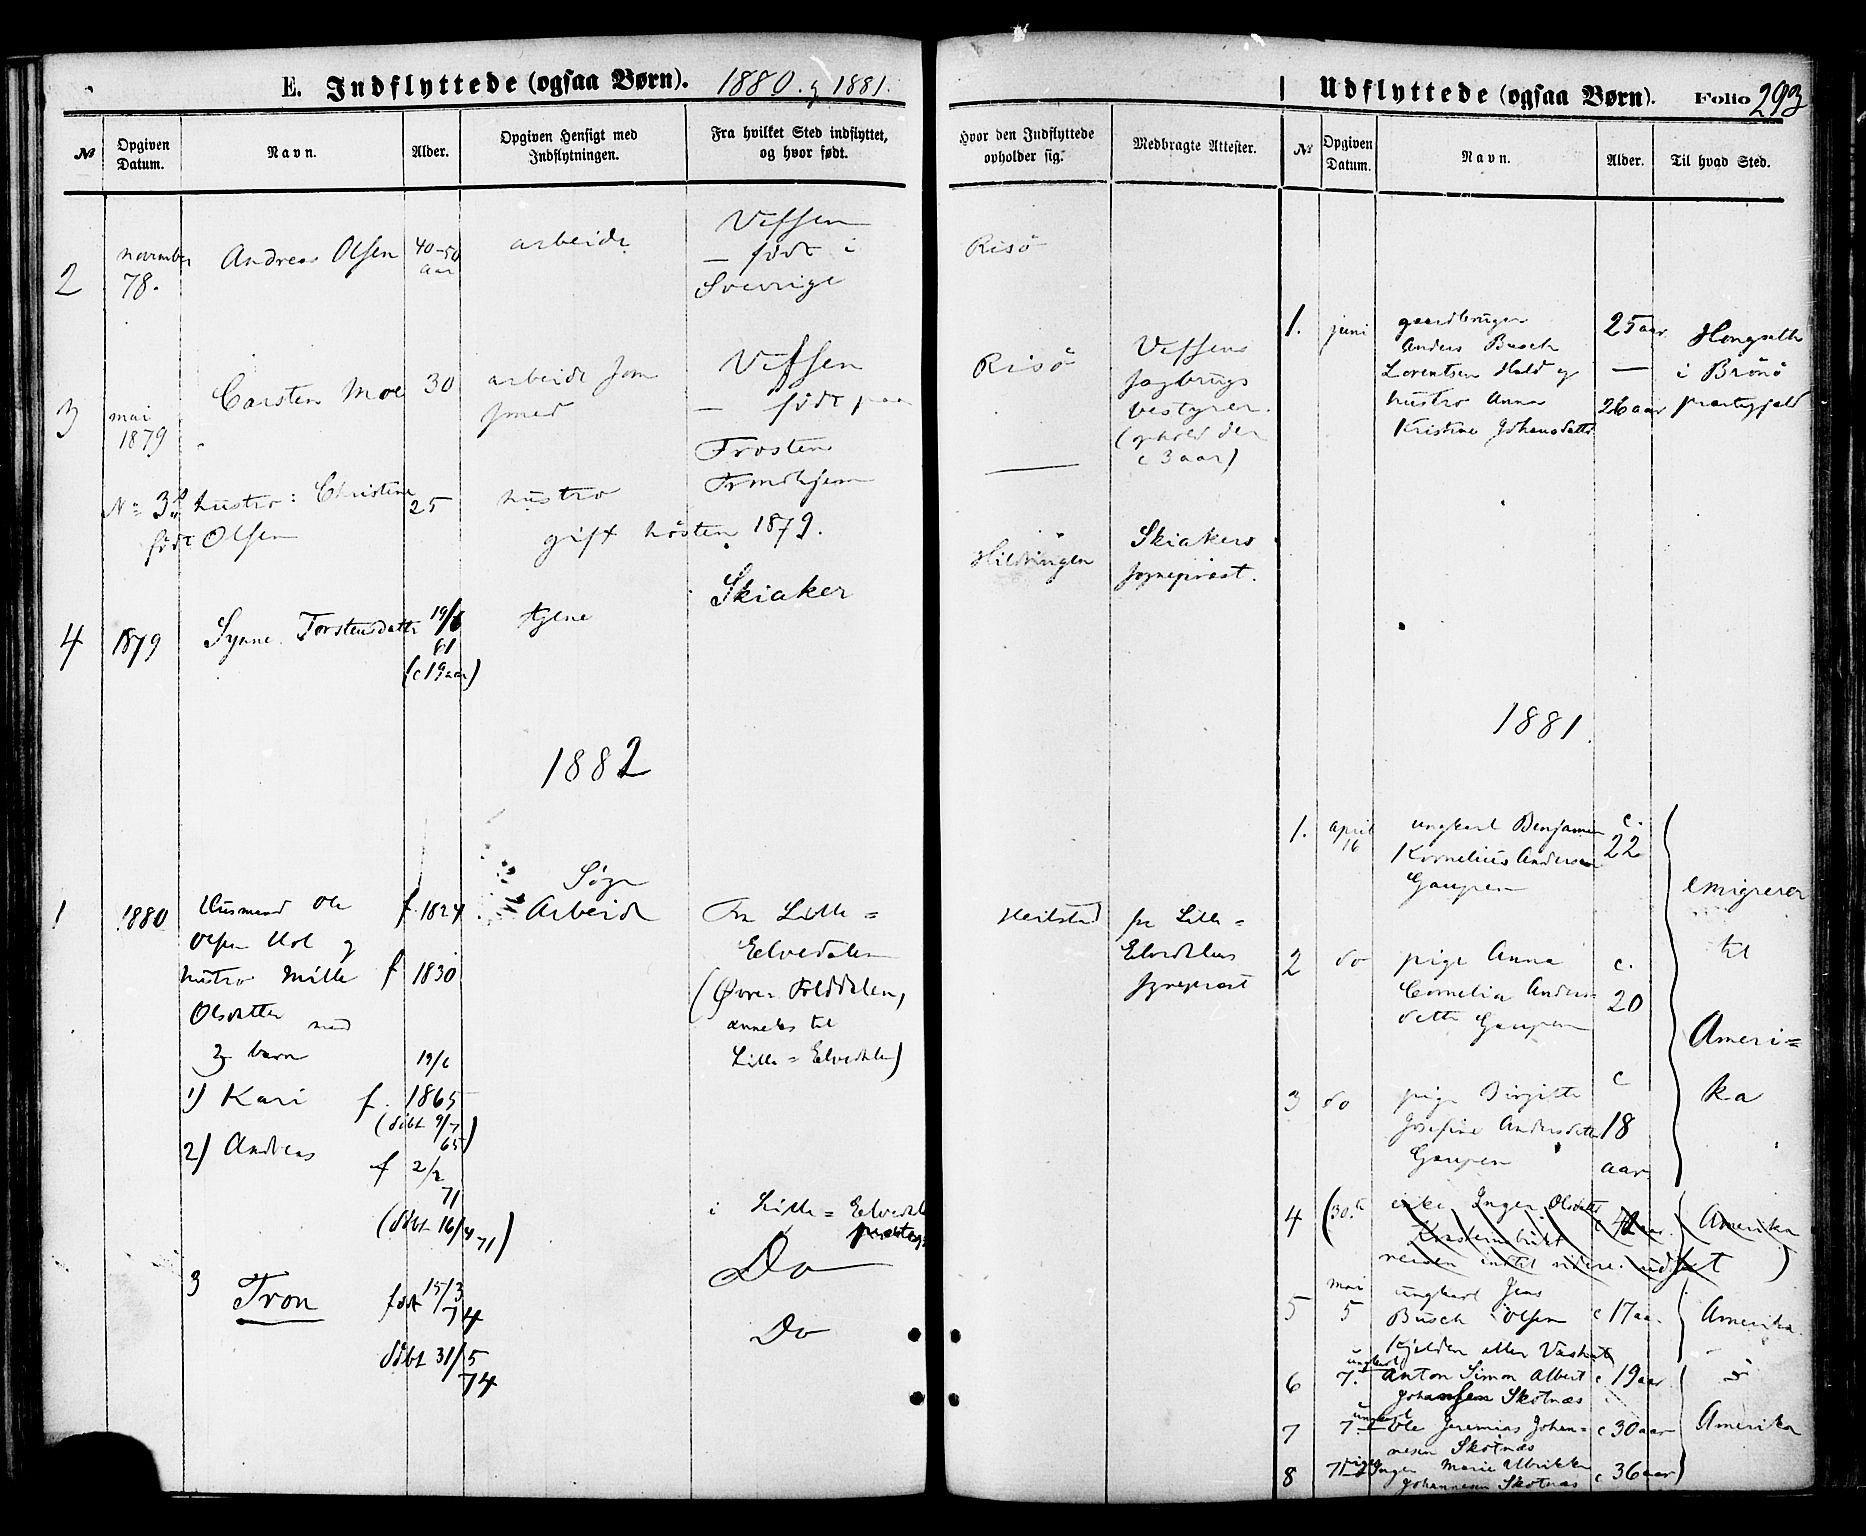 E. Indflyttede (ogsaa Børn). 1880. og 1881.
№
Opgiven Datum.
Navn.
Alder.
Opgiven Hensigt med Indflytningen.
Fra hvilket Sted indflyttet, og hvor født.
2
november
78.
Andreas Olsen
40-50
aar
arbeide
Vefsen
— født i
Sverrige
3
mai
1879
Carsten Moe
30
arbeide som
smed
Vefsen
— født paa
Frosten
Trondhjem
№ 3b hustro: Christine
født Olsen
25
hustro
gift hösten 1879.
4
1879
Synne Torstensdatter
19/6
61
(c 19 aar)
tjene
Skiaker
1882
1
1880
Husmand Ole
f 1824
Søge
Arbeide
Fra Lille=
Olsen Hol og
Elvedalen
hustro Mille
f 1830
(Øvre Folddalen,
Olsdatter med
anneks til
3 børn
Lille=Elvedalen)
1) Kari
f. 19/6
1865
(döbt 9/7
65)
2) Andreas
f 2/2
71
(döbt 16/4 71)
i Lille=Elvedals
præsteg.
Do
3
Tron
født 15/3
74
döbt 31/5
74
Do
Udflyttede (ogsaa Børn). Folio 293
Hvor den Indflyttede opholder sig.
Medbragte Attester.
№
Opgiven Datum.
Navn.
Alder.
Til hvad Sted.
Risö
Risö
Vefsens
fogbrugs
bestyrer.
(ophold der
c 3 aar)
Hildringen
Skiakers
sognepræst.
Heilstad
fra Lille=
Elvedalens
sognepræst
1.
juni
gaardbruger
Anders Busch
Lorentsen Hald og
hustro Anna
Kristine Johansdatter
25 aar
—
26 aar
Hongseth
i Brönö
præstegjeld
1881.
1.
april
16
ungkarl Benjamin
Kornelius Andersen
Gaupen
c.
22
2
do
pige Anna
Cornelia Anders-
datter Gaupen
c.
20
3
do
pige Birgitte
Josefine Andersdatter
Gaupen
c
18
aar
emigrerer
til
Ameri=
ka
4
(30.te
enke Inger Olsdatter
c 42 aar.
Amerika
reisen indtil videre udsat )
5
mai
5
ungkarl Jens
Busch Olsen
Kjelden eller
c 17 aar
Amerika.
6
7.
ungkarl
Anton Simon Albert
Johansen Skotnæs
c 19 aar
7
7.
ungkarl
Ole Jeremias Johan=
nesen Skotnæs
c 30 aar
Amerika
8
7
pige Inger Marie Ulrikke
Johannesen Skotnæs
c 36 aar